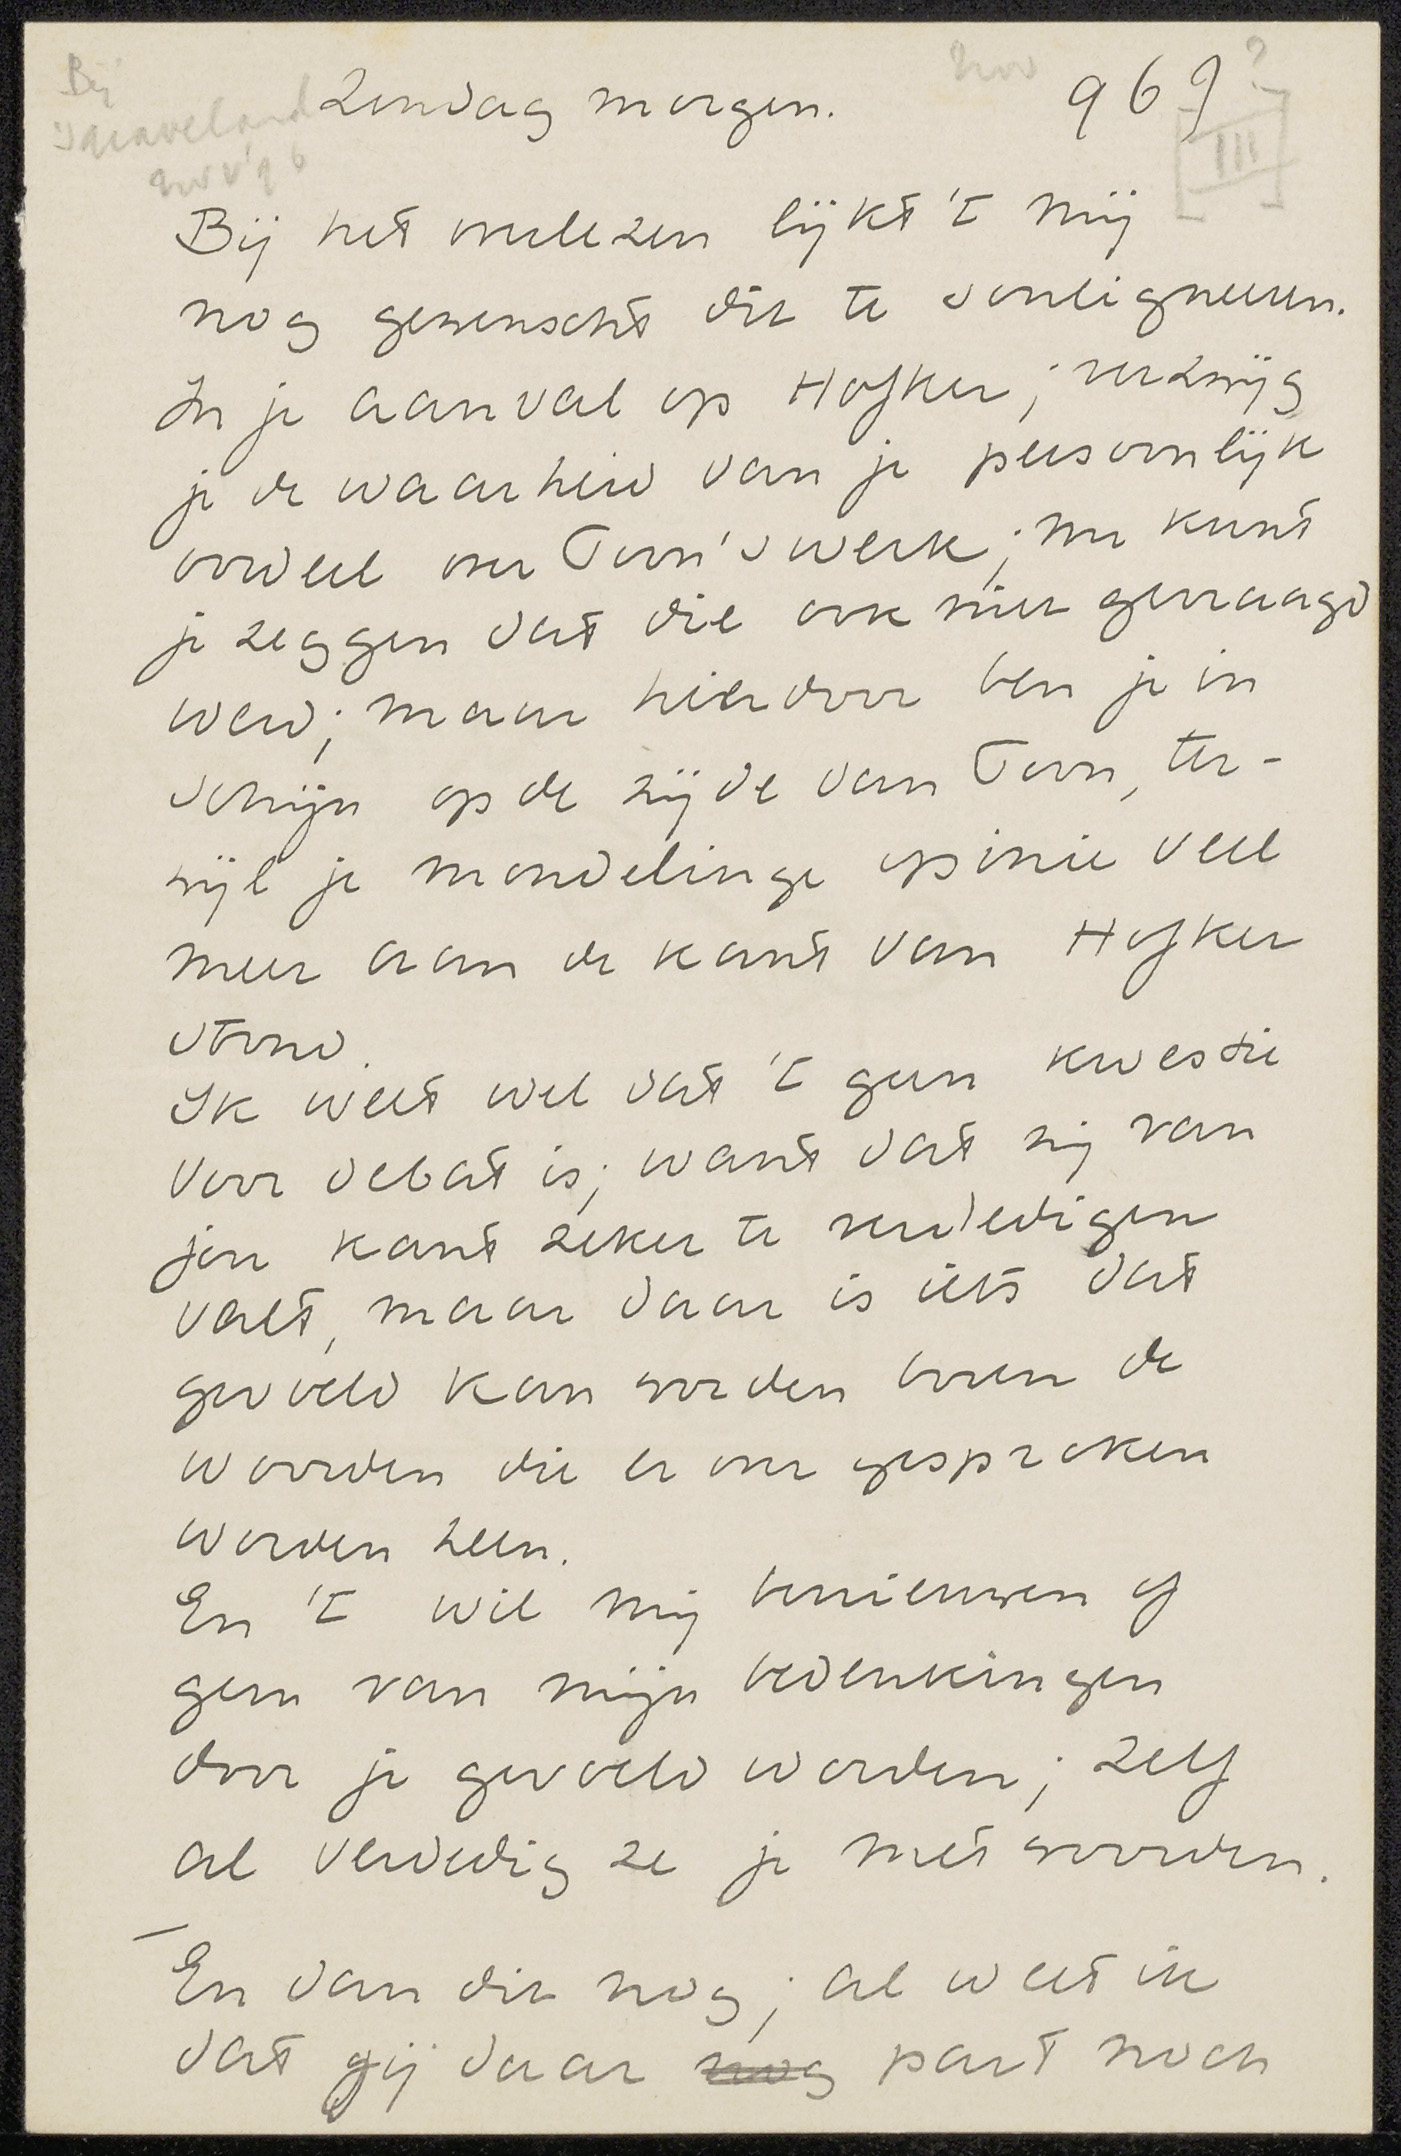 Bij
's Graveland
nov '96
Zondag morgen.
nov 96 ?
[III]
Bij het overlezen lijkt 't mij
nog gewenscht dit te souligneeren.
In je aanval op Hofker; verzwijg
je de waarheid van je persoonlijk
oordeel over Toon's werk; nu kunt
je zeggen dat die ook niet gevraagd
werd; maar hierdoor ben je in
schijn op de zijde van Toon, ter-
wijl je mondelinge opinie veel
meer aan de kant van Hofker
stond.
Ik weet wel dat 't geen kwestie
voor debat is; want dat zij van
jou kant zeker te verdedigen
valt, maar daar is iets dat
gevoeld kan worden boven de
woorden die er over gesproken
worden heen.
En 't wil mij benieuwen of
geen van mijn bedenkingen
door je gevoeld worden; zelf
al verdedig ze je met woorden.
En dan dit nog; al weet ik
dat gij daar nog part noch